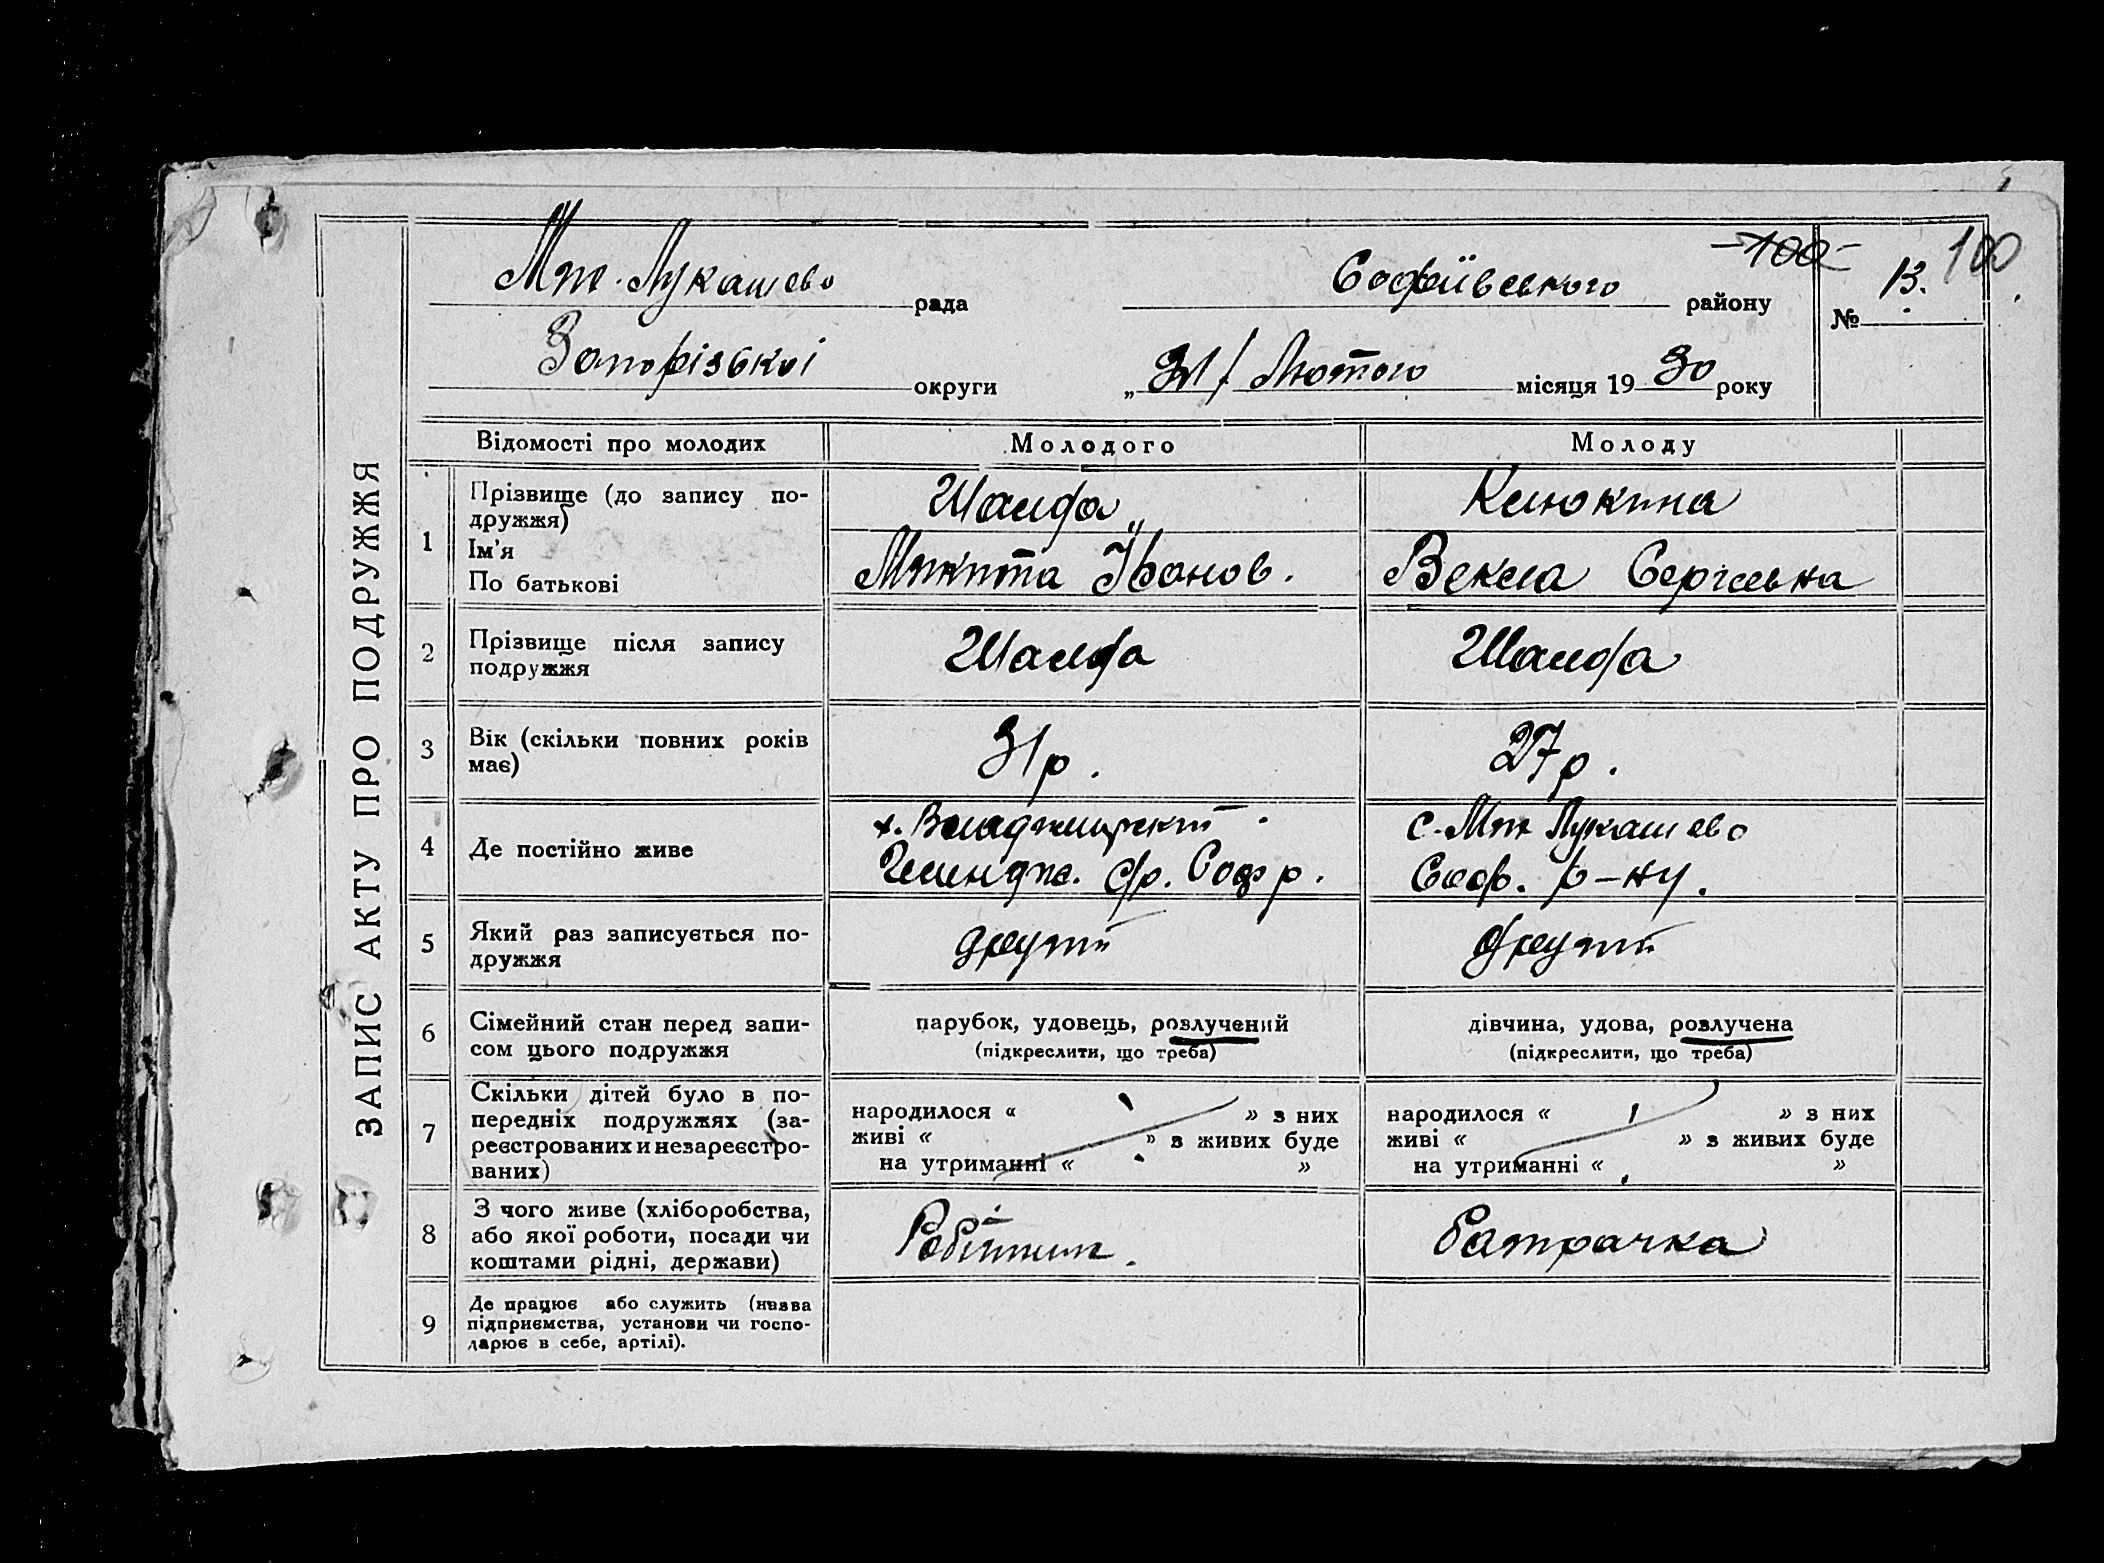 ЗАПИС АКТУ ПРО ПОДРУЖЖЯ
-100-
100
Мик-Лукашево рада
Софіївського району
№ 13.
Запорізької округи
„21/ Лютого місяця 1930 року
Відомості про молодих
Молодого
Молоду
1
Прізвище (до запису по-
дружжя)
Ім'я
По батькові
Шалфа
Микита Іванов.
Клюкина
Векла Сергіевна
2
Прізвище після запису
подружжя
Шалфа
Шалфа
3
Вік (скільки повних років
має)
31 р.
27 р.
4
Де постійно живе
х. Владимирськ.
с/р. Соф р.
с. Мик Лукашево
Соф. р-ну.
5
Який раз записується по-
дружжя
другий
другий
6
Сімейний стан перед запи-
сом цього подружжя
парубок, удовець, розлучений
(підкреслити, що треба)
дівчина, удова, розлучена
(підкреслити, що треба)
7
Скільки дітей було в по-
передніх подружжях (за-
реєстрованих и незареєстро-
ваних)
народилося « » з них
живі « » з живих буде
на утриманні « »
народилося « » з них
живі « » з живих буде
на утриманні « »
8
З чого живе (хліборобства,
або якої роботи, посади чи
коштами рідні, держави)
Робітник.
батрачка
9
Де працює або служить (назва
підприємства, установи чи госпо-
дарює в себе, артілі).